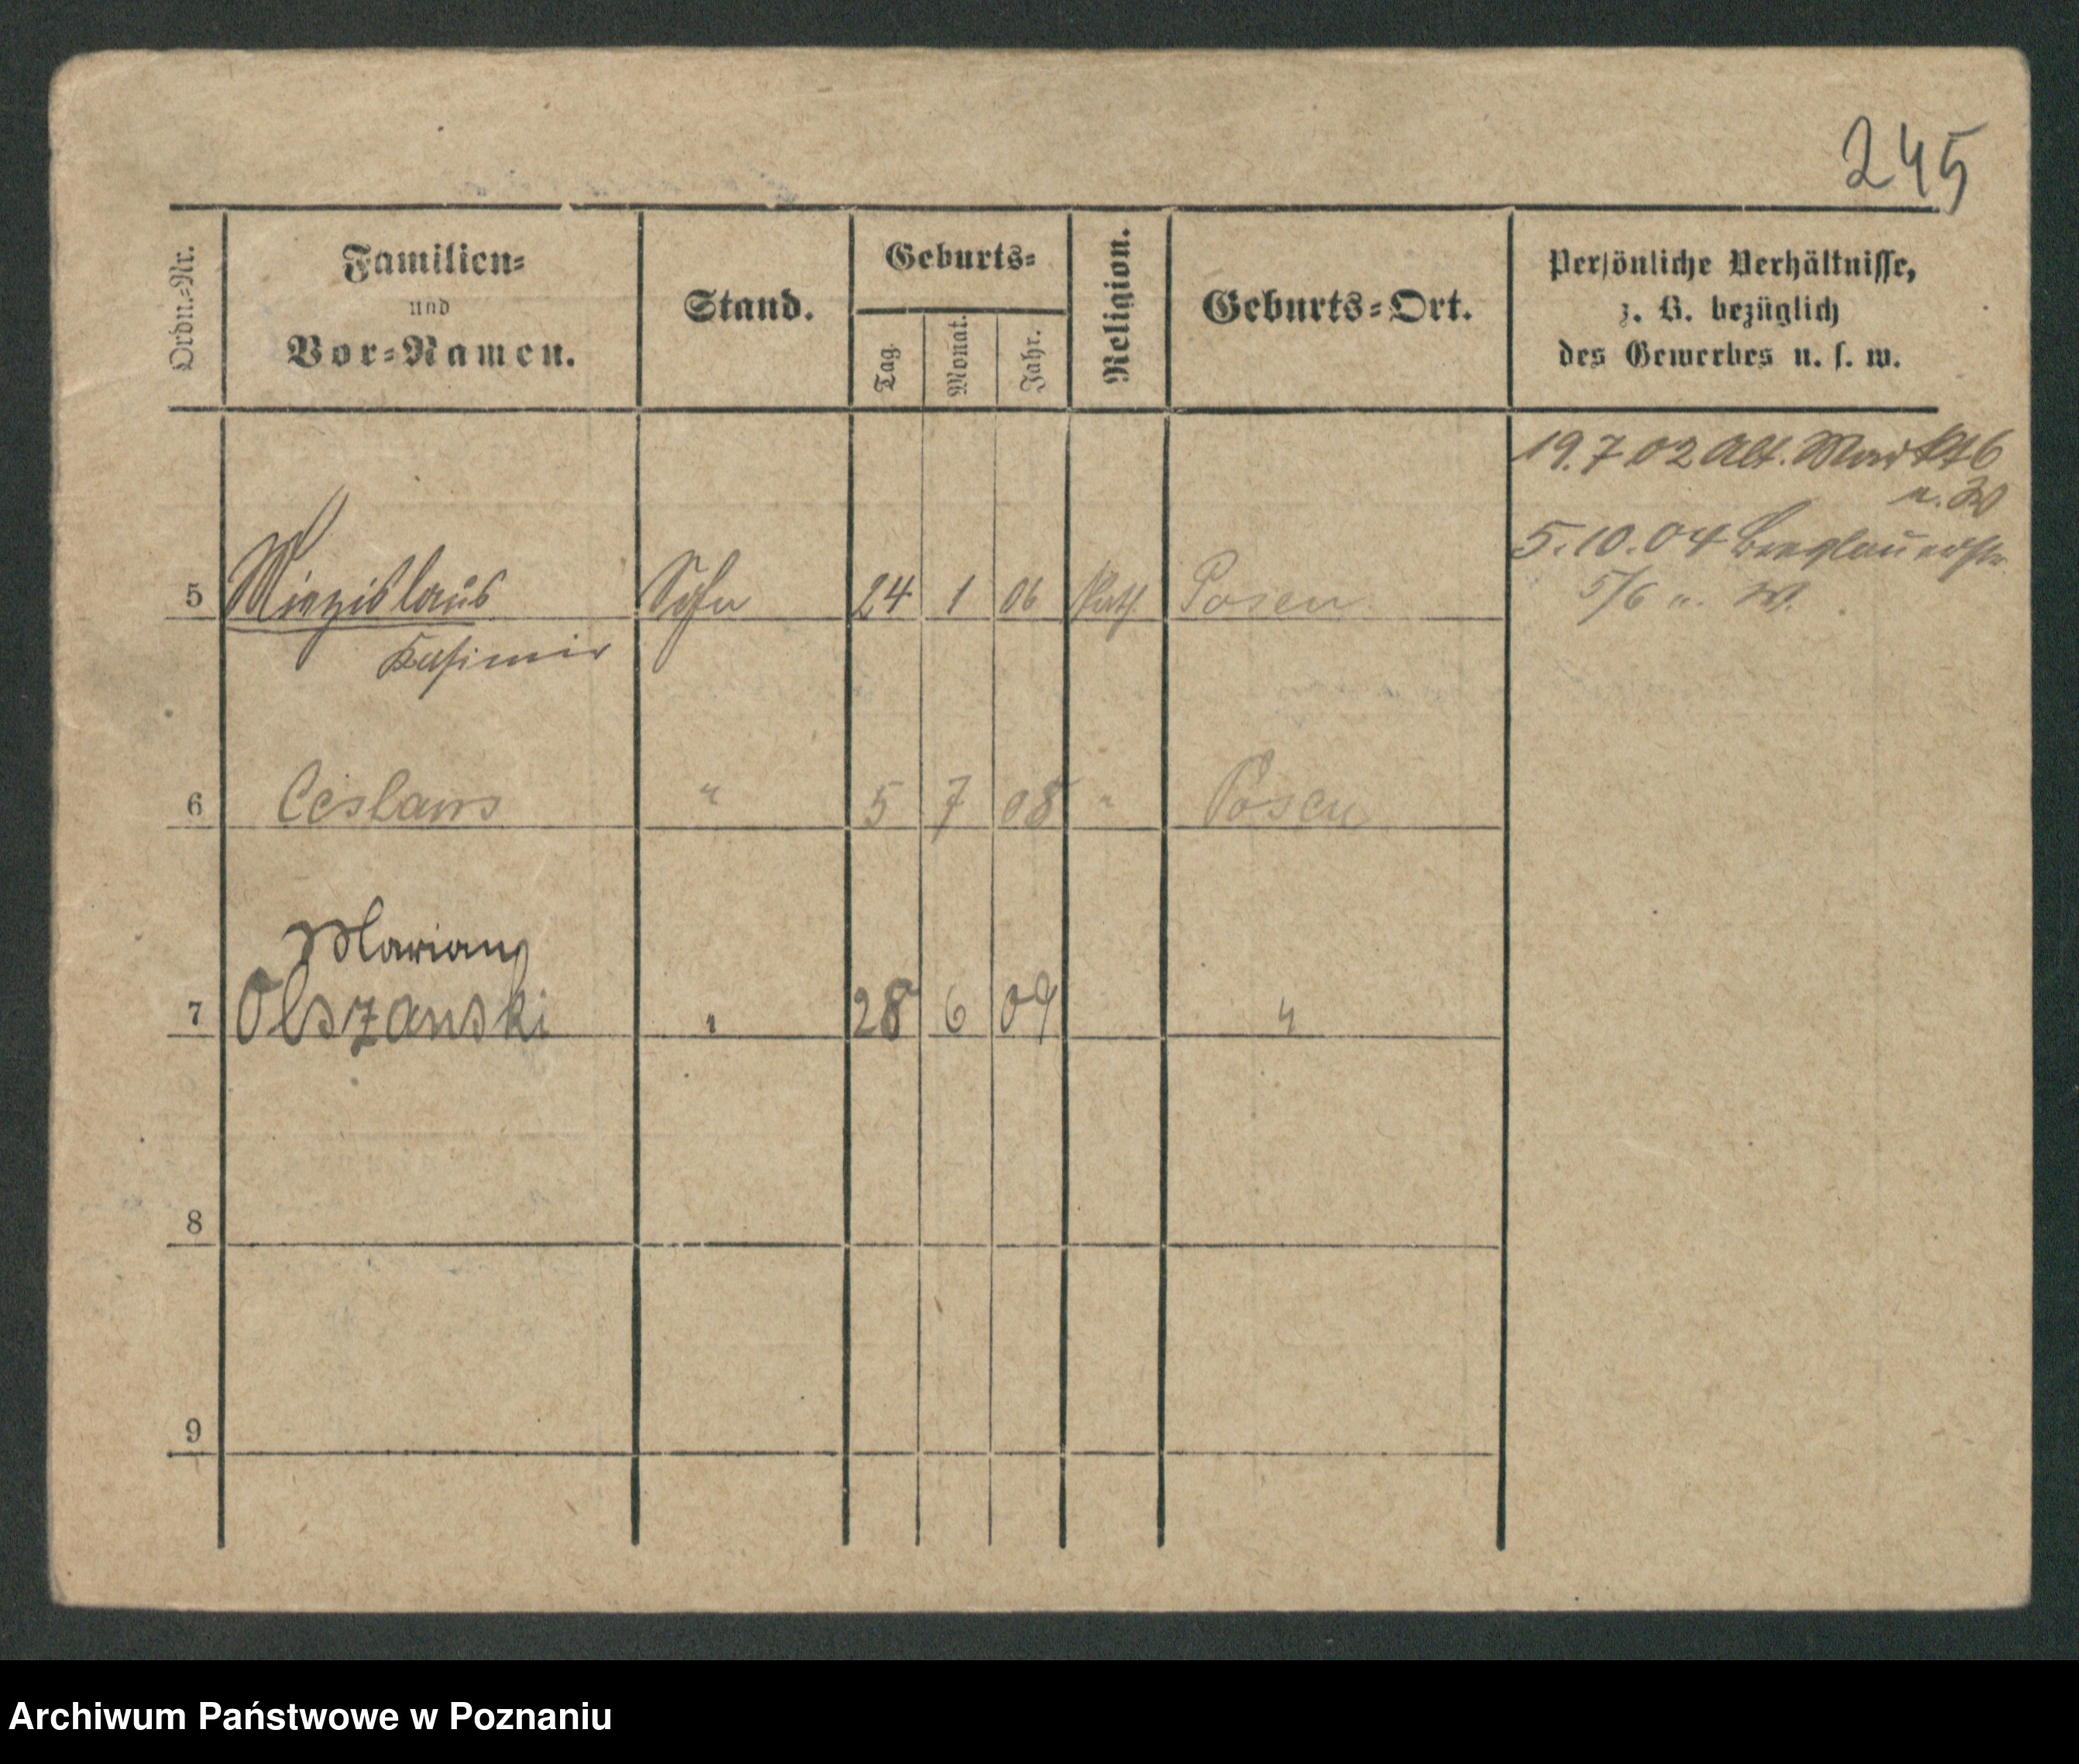 245
Ordn.-Nr.
Familien-
und
Vor-Namen.
Stand.
Geburts-
Tag.
Monat.
Jahr.
Religion.
Geburts-Ort.
Persönliche Verhältnisse,
z. B. bezüglich
des Gewerbes u. s. w.
19.7.02 Alt. Markt 6
u. W
5.10.04 Breslauerstr
5/6 u. W.
5 Miezislaus Sohn 24 1 06 Kath. Posen
Kasimir
6 Ceslaus " 5 7 08 " Posen
Marian
7 Olszanski " 28 6 09 "
8
9
Archiwum Państwowe w Poznaniu